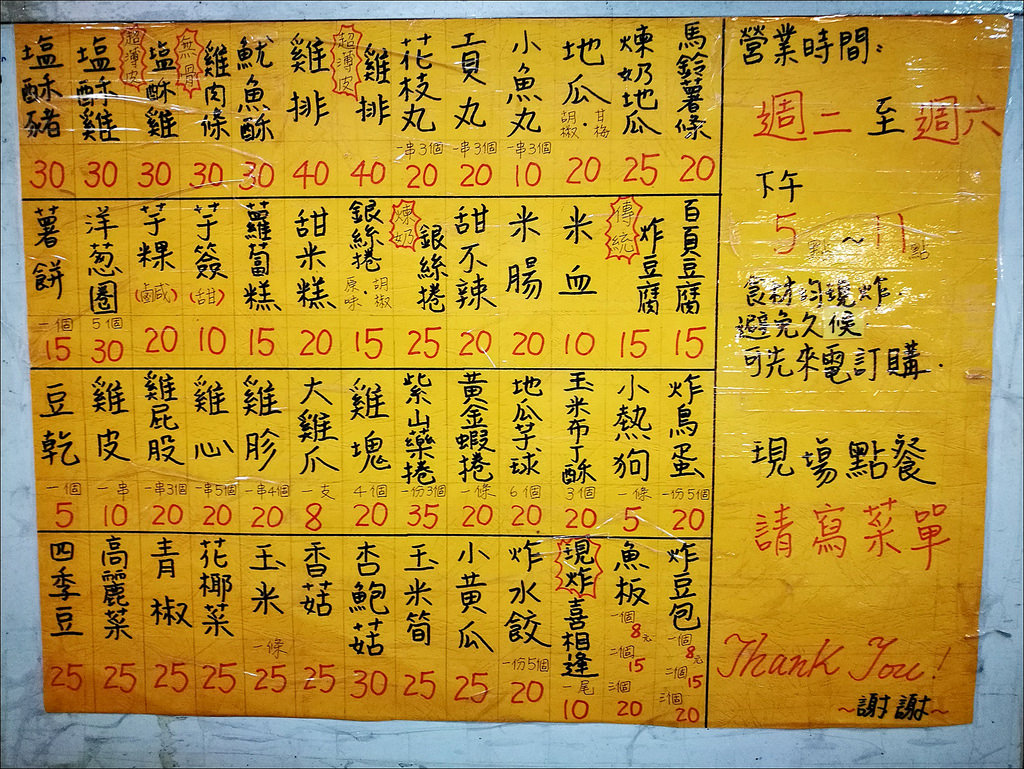 營業時間:
週二至週六
下午
5點~11點
食材均現炸
避免久候
可先來電訂購.
現場點餐
請寫菜單
Thank You!
~謝謝~
馬鈴薯條 20
煉奶地瓜 25
地瓜 甘梅·胡椒 20
小魚丸 一串3個 10
貢丸 一串3個 20
花枝丸 一串3個 20
超薄皮 雞排 40
雞排 40
魷魚酥 30
無骨 雞肉條 30
超薄皮 塩酥雞 30
塩酥雞 30
塩酥豬 30
百頁豆腐 15
傳統 炸豆腐 15
米血 10
米腸 20
甜不辣 20
煉奶 銀絲捲 25
銀絲捲 原味·胡椒 15
甜米糕 20
蘿蔔糕 15
芋簽(甜) 10
芋粿(鹹) 20
洋葱圈 5個 30
薯餅 二個 15
炸鳥蛋 一份5個 20
小熱狗 一條 5
玉米布丁酥 3個 20
地瓜芋球 6個 20
黃金蝦捲 一條 20
紫山藥捲 一份3個 35
雞塊 4個 20
大雞爪 一支 8
雞胗 一串4個 20
雞心 一串5個 20
雞屁股 一串3個 20
雞皮 一串 10
豆乾 一個 5
炸豆包 一個8元 二個15 三個20
魚板 一個8元 二個15 三個20
現炸 喜相逢 一尾 10
炸水餃 一份5個 20
小黃瓜 25
玉米筍 25
杏鮑菇 30
香菇 25
玉米 一條 25
花椰菜 25
青椒 25
高麗菜 25
四季豆 25